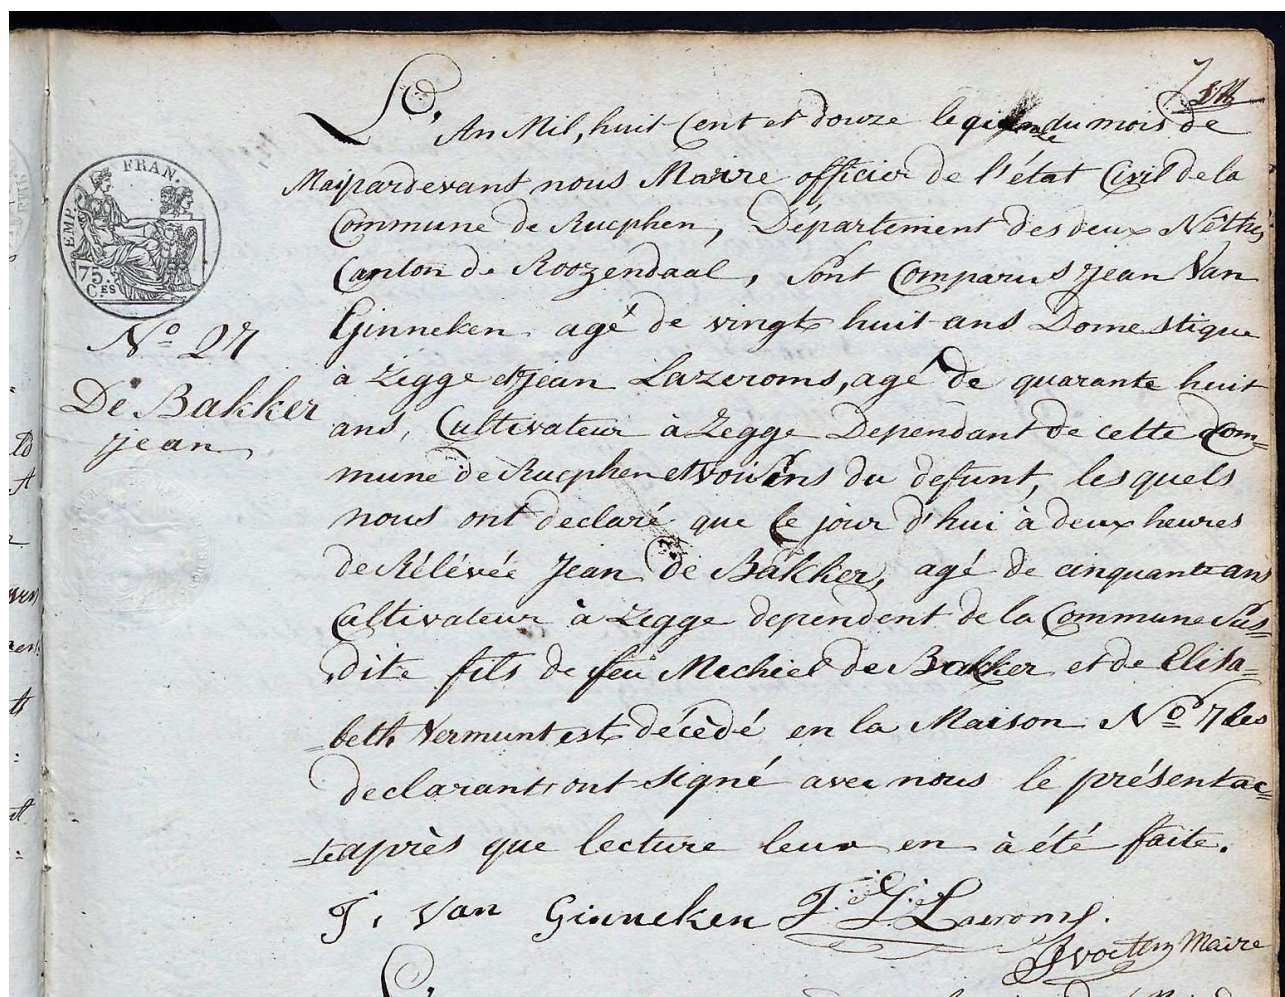 L'An Mil, huit Cent et douze le quinze du mois de
Mai pardevant nous Maire officier de l'état Civil de la
Commune de Rucphen, Département des deux Néthes
Canton de Roozendaal, sont Comparus Jean Van
Ginneken agé de vingt huit ans Domestique
à Zegge et Jean Lazeroms, agé de quarante huit
ans, Cultivateur à Zegge Dependant de cette Com=
mune de Rucphen et voisins du defunt, les quels
nous ont declaré que ce jour d'hui à deux heures
de Rélévée Jean de Bakker, agé de cinquante ans
Cultivateur à Zegge dependent de la Commune sus=
dite fils de feu Mechiel de Bakker et de Elisa=
=beth Vermunt est décèdé en la Maison No 7 les
declarants ont signé avec nous le présent ac=
=te après que lecture leur en à été faite.
J. Van Ginneken J. J. Laseroms.
Maire
EMP. FRAN.
75. C.ES
No 27
De Bakker
jean